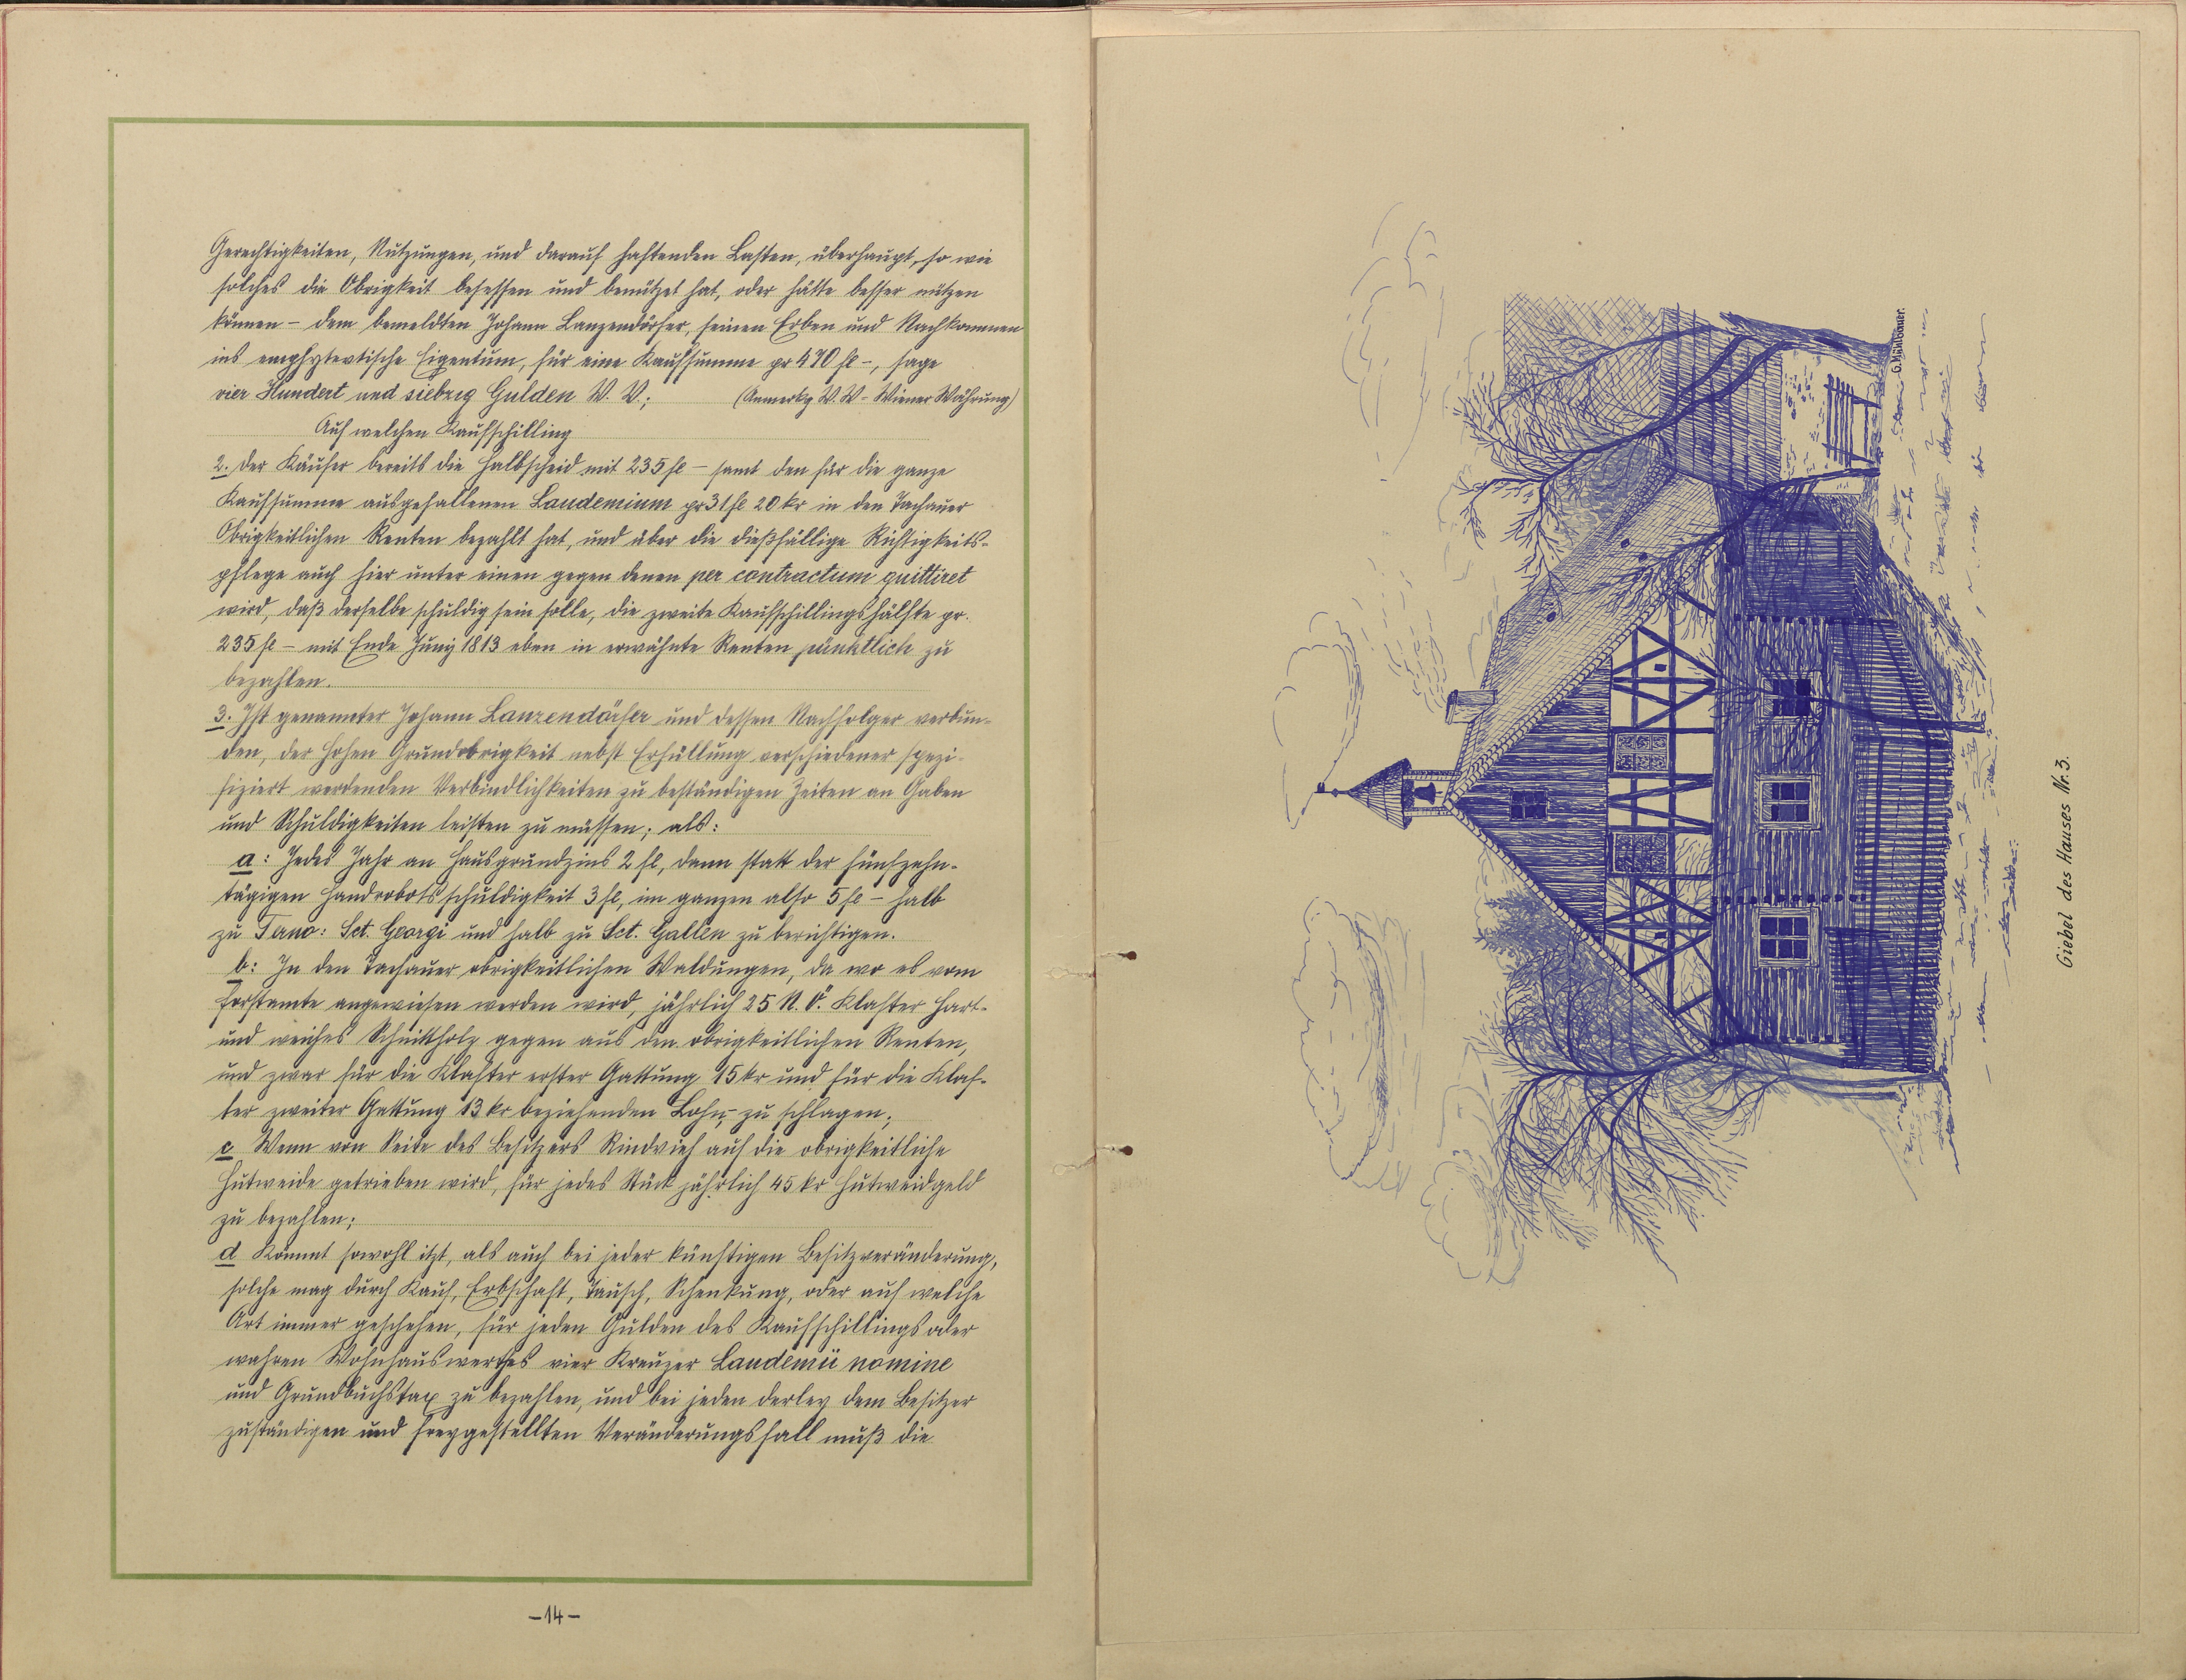 Gerechtigkeiten, Nutzungen, und darauf haftenden Lasten, überhaupt, so wie
solches die Obrigkeit besessen und benützet hat, oder hätte besser nützen
können – dem bemeldten Johann Lanzendörfer, seinen Erben und Nachkommen
ins emphytevtische Eigentum, für eine Kaufsumme pr 470 fl –, sage
vier Hundert und siebzig Gulden W. W.; (Anmerkg W. W – Wiener Währung)
Auf welchen Kaufschilling
2. Der Käufer bereits die Halbscheid mit 235 fl – samt den für die ganze
Kaufsumme ausgefallenen Laudemium pr 31 fl 20 kr in den Tachauer
Obrigkeitlichen Renten bezahlt hat, und über die dießfällige Richtigkeits-
pflege auch hier unter einen gegen denen per contractum quittiret
wird, daß derselbe schuldig sein solle, die zweite Kaufschillingshälfte pr.
235 fl – mit Ende Juny 1813 eben in erwähnte Renten pünktlich zu
bezahlen.
3. Ist genannter Johann Lanzendörfer und dessen Nachfolger verbun-
den, der hohen Grundobrigkeit nebst Erfüllung verschiedener spezi-
fiziert werdenden Verbindlichkeiten zu beständigen Zeiten an Gaben
und Schuldigkeiten leisten zu müssen; als:
a: Jedes Jahr an Hausgrundzins 2 fl, dann statt der fünfzehn-
tägigen Handrobotsschuldigkeit 3 fl, im ganzen also 5 fl – halb
zu Termo: Sct. Georgi und halb zu Sct. Gallen zu berichtigen.
b: In den Tachauer obrigkeitlichen Waldungen, da wo es vom
Forstamte angewiesen werden wird, jährlich 25 N. Ö. Klafter hart-
und weiches Schnittholz gegen aus den obrigkeitlichen Renten,
und zwar für die Klafter erster Gattung 15 kr und für die Klaf-
ter zweiter Gattung 13 kr beziehenden Lohn – zu schlagen;
c Wenn von Seite des Besitzers Rindvieh auf die obrigkeitliche
Hutweide getrieben wird, für jedes Stück jährlich 45 kr Hutweidgeld
zu bezahlen;
d Kommt sowohl itzt, als auch bei jeder künftigen Besitzveränderung,
solche mag durch Kauf, Erbschaft, Tausch, Schenkung, oder auf welche
Art immer geschehen, für jeden Gulden des Kaufschillings oder
wahren Wohnhauswerthes vier Kreuzer Laudemii nomine
und Grundbuchstax zu bezahlen, und bei jeden derley dem Besitzer
zuständigen und freygestellten Veränderungsfall muß die
–14–
G. Mühlbauer.
Giebel des Hauses Nr. 3.